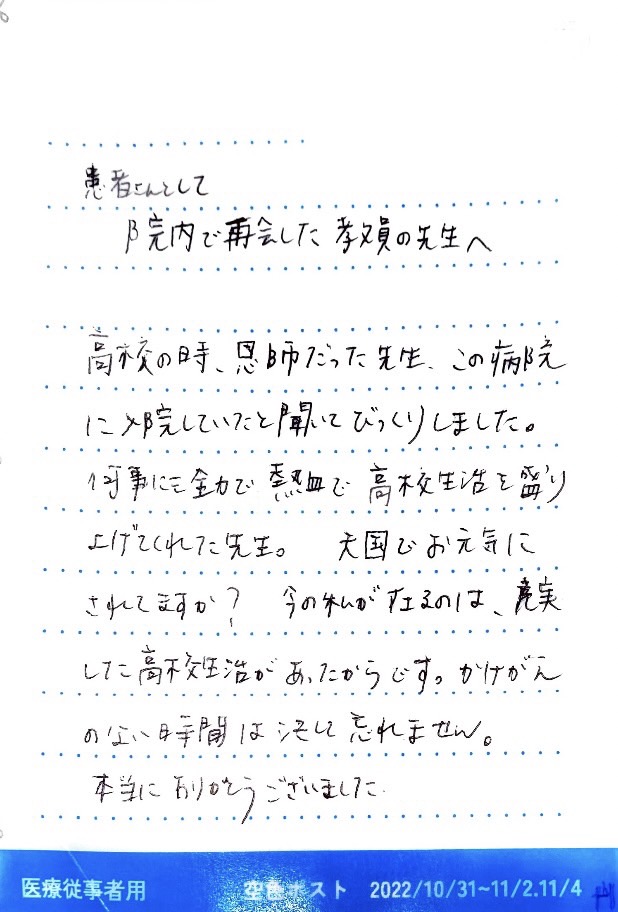 患者さんとして
院内で再会した 教員の先生へ
高校の時、恩師だった先生、この病院
に入院していたと聞いてびっくりしました。
何事にも全力で 熱血で 高校生活を盛り
上げてくれた先生。 天国でお元気に
されてますか? 今の私が在るのは、充実
した高校生活があったからです。かけがえ
のない時間は決して忘れません。
本当にありがとうございました
医療従事者用 空色ポスト 2022/10/31~11/2.11/4